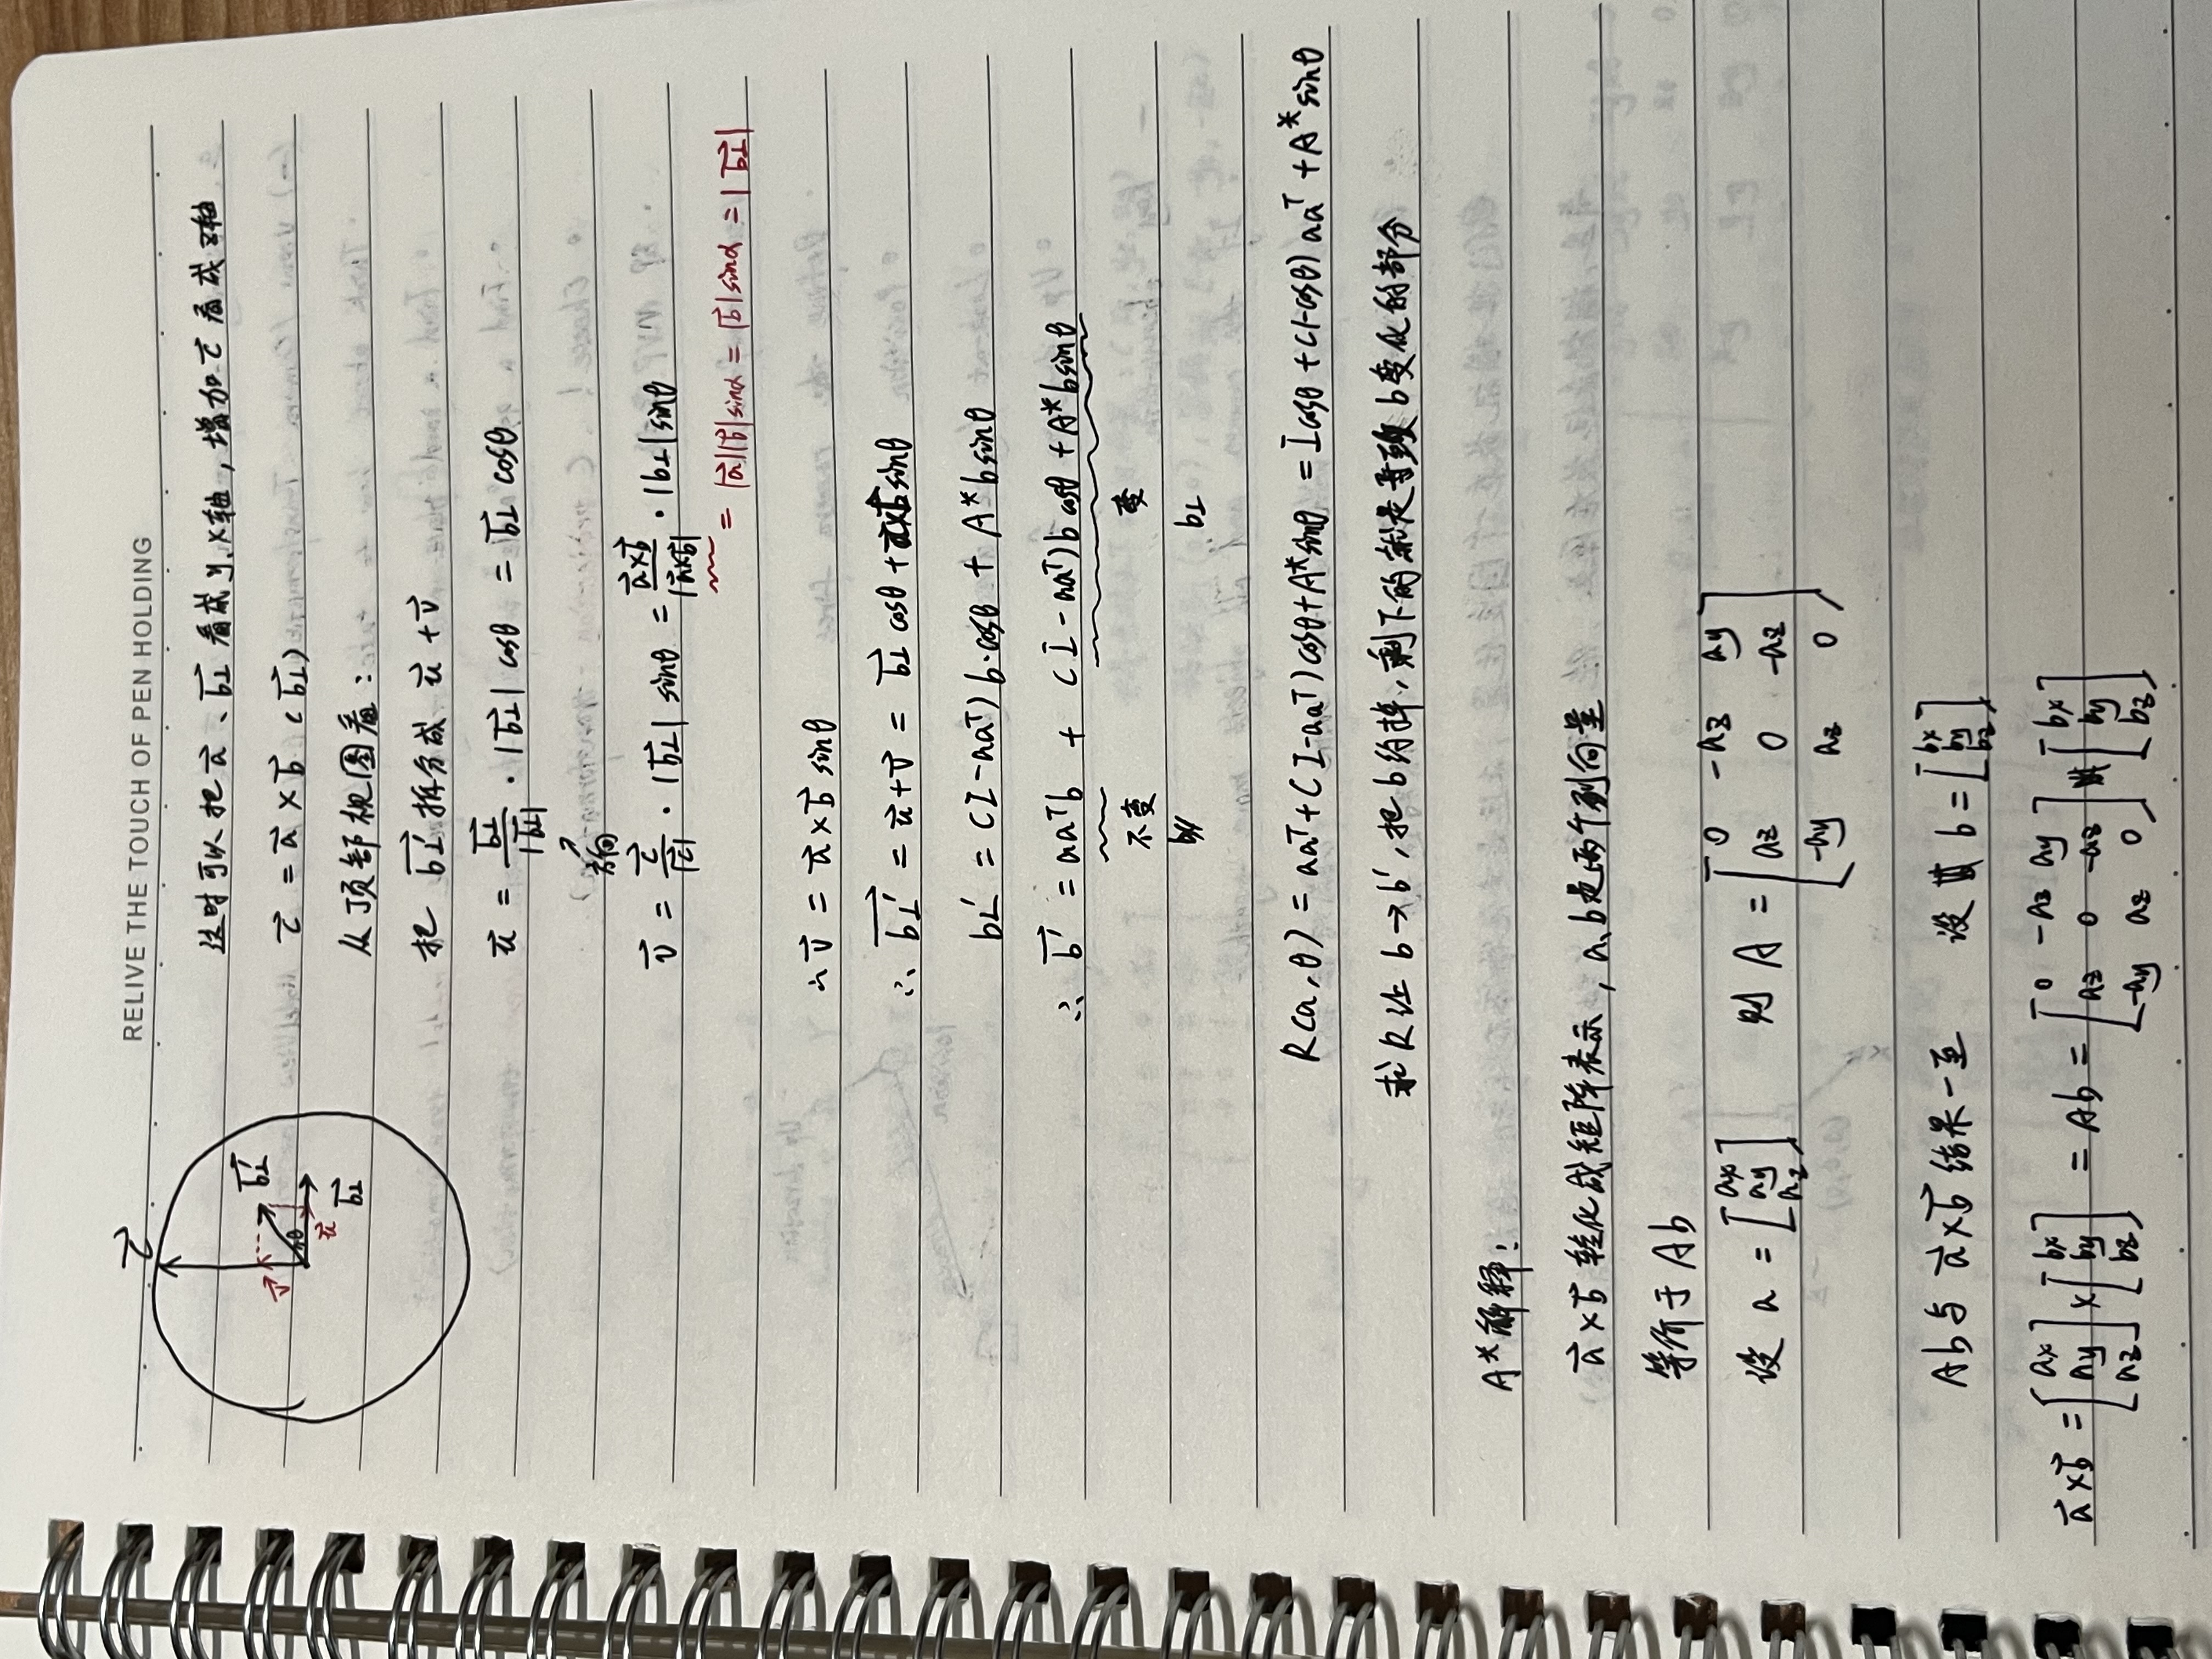 RELIVE THE TOUCH OF PEN HOLDING
这时可以把 a⃗、b⊥⃗ 看成 y、x轴, 增加 c⃗ 看成 z轴
c⃗ = a⃗ × b⃗ (b⊥⃗)
从顶部视图看:
把 b⊥'⃗ 拆分成 u⃗ + v⃗
u⃗ = b⊥⃗/|b⊥⃗| · |b⊥⃗| cosθ = b⊥⃗ cosθ
方向
v⃗ = c⃗/|c⃗| · |b⊥⃗| sinθ = a⃗×b⃗/|a⃗×b⃗| · |b⊥| sinθ
= |a⃗||b⃗|sinα = |b⃗|sinα = |b⊥⃗|
∴ v⃗ = a⃗ × b⃗ sinθ
∴ b⊥'⃗ = u⃗+v⃗ = b⊥⃗ cosθ + a⃗×b⃗ sinθ
b⊥' = (I-aaᵀ) b·cosθ + A* b sinθ
∴ b'⃗ = aaᵀb + (I-aaᵀ)b cosθ + A* b sinθ
不变 变
b∥ b⊥
R(a,θ) = aaᵀ+(I-aaᵀ)cosθ+A*sinθ = Icosθ + (1-cosθ) aaᵀ + A* sinθ
求R让 b→b', 把 b 约掉, 剩下的就是导致 b变化的部分
A*解释:
a⃗×b⃗ 转化成矩阵表示, a、b是两个列向量
等价于 Ab
设 a = [ax ay az] 则 A = [0 -az ay
az 0 -az
-ay az 0]
Ab与 a⃗×b⃗ 结果一至 设 b = [bx by bz]
a⃗×b⃗ = [ax ay az] × [bx by bz] = Ab = [0 -az ay
az 0 -az
-ay az 0] [bx by bz]
c⃗
b⊥'⃗
v⃗
θ
u⃗
b⊥⃗